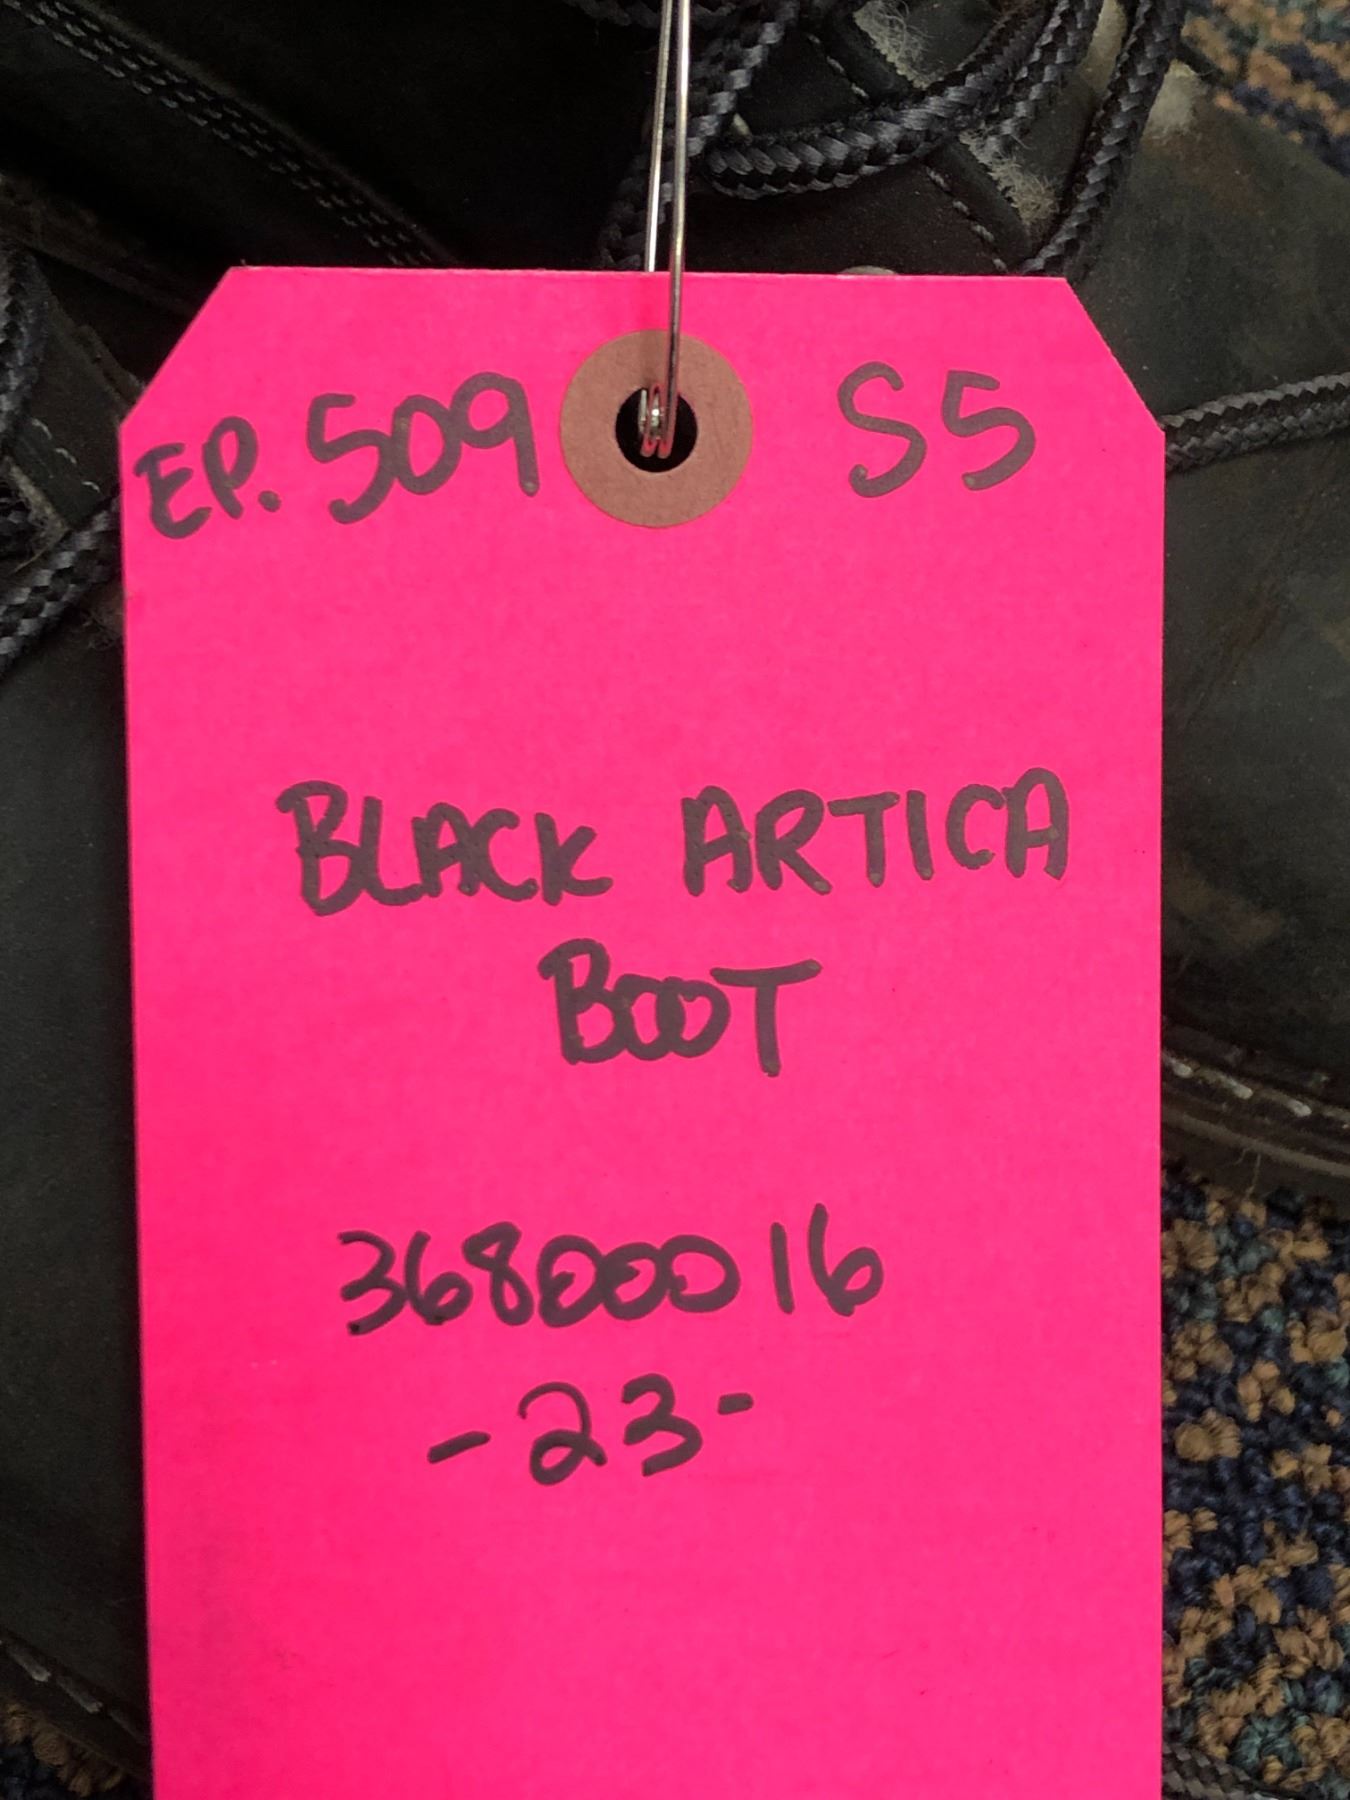 EP. 509 S5
BLACK ARTICA
BOOT
36800016
-23-